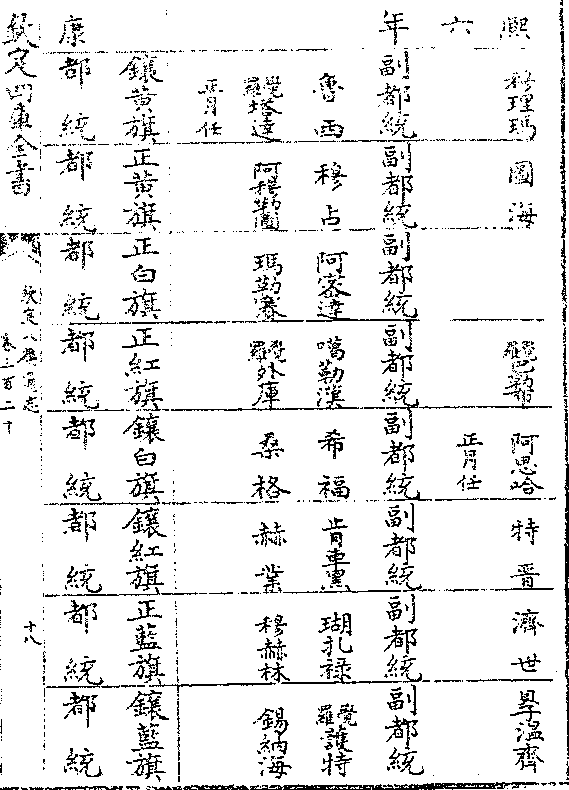 熙 穆理瑪 圖海 覺羅巴 阿思哈 特晋 濟世 温齊
六 正月任
年 副都統 副都統 副都統 副都統 副都統 副都統 副都統 副都統
魯西 穆占 阿密達 噶勒漢 希福 肯車黑 瑚扎祿 覺羅護特
覺羅塔達 阿穆勒圖 瑪勒賽 覺羅外庫 桑格 赫業 穆赫林 錫納海
正月任
鑲黃旗 正黃旗 正白旗 正紅旗 鑲白旗 鑲紅旗 正藍旗 鑲藍旗
康 都統 都統 都統 都統 都統 都統 都統 都統
欽定四庫全書
欽定八旗通志
卷三百二十
十八